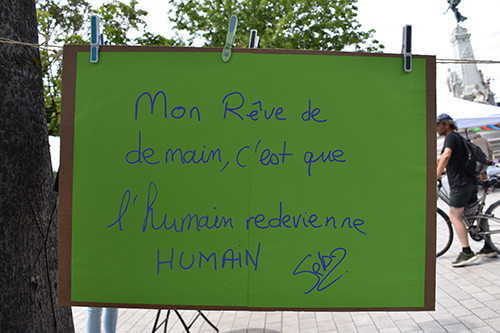 Mon Rêve de
demain, c'est que
l'humain redevienne
HUMAIN